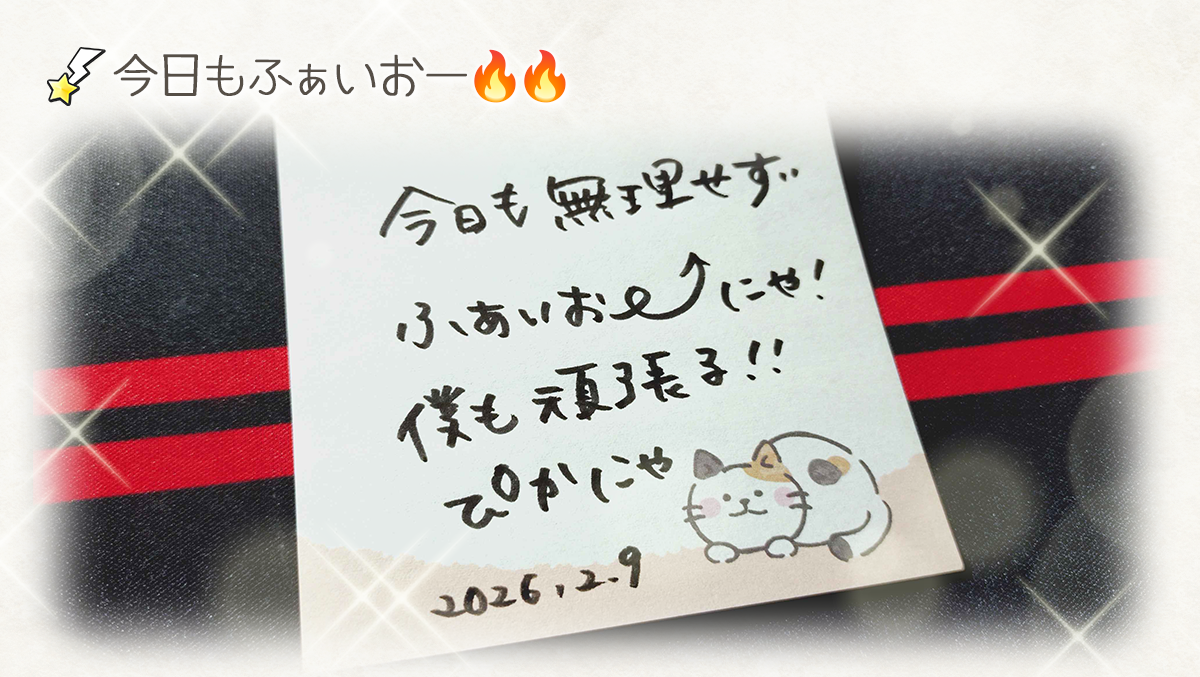 今日もふぁいおー🔥🔥
今日も無理せず
ふぁいおー⤴にゃ!
僕も頑張る!!
ぴかにゃ
2026.2.9